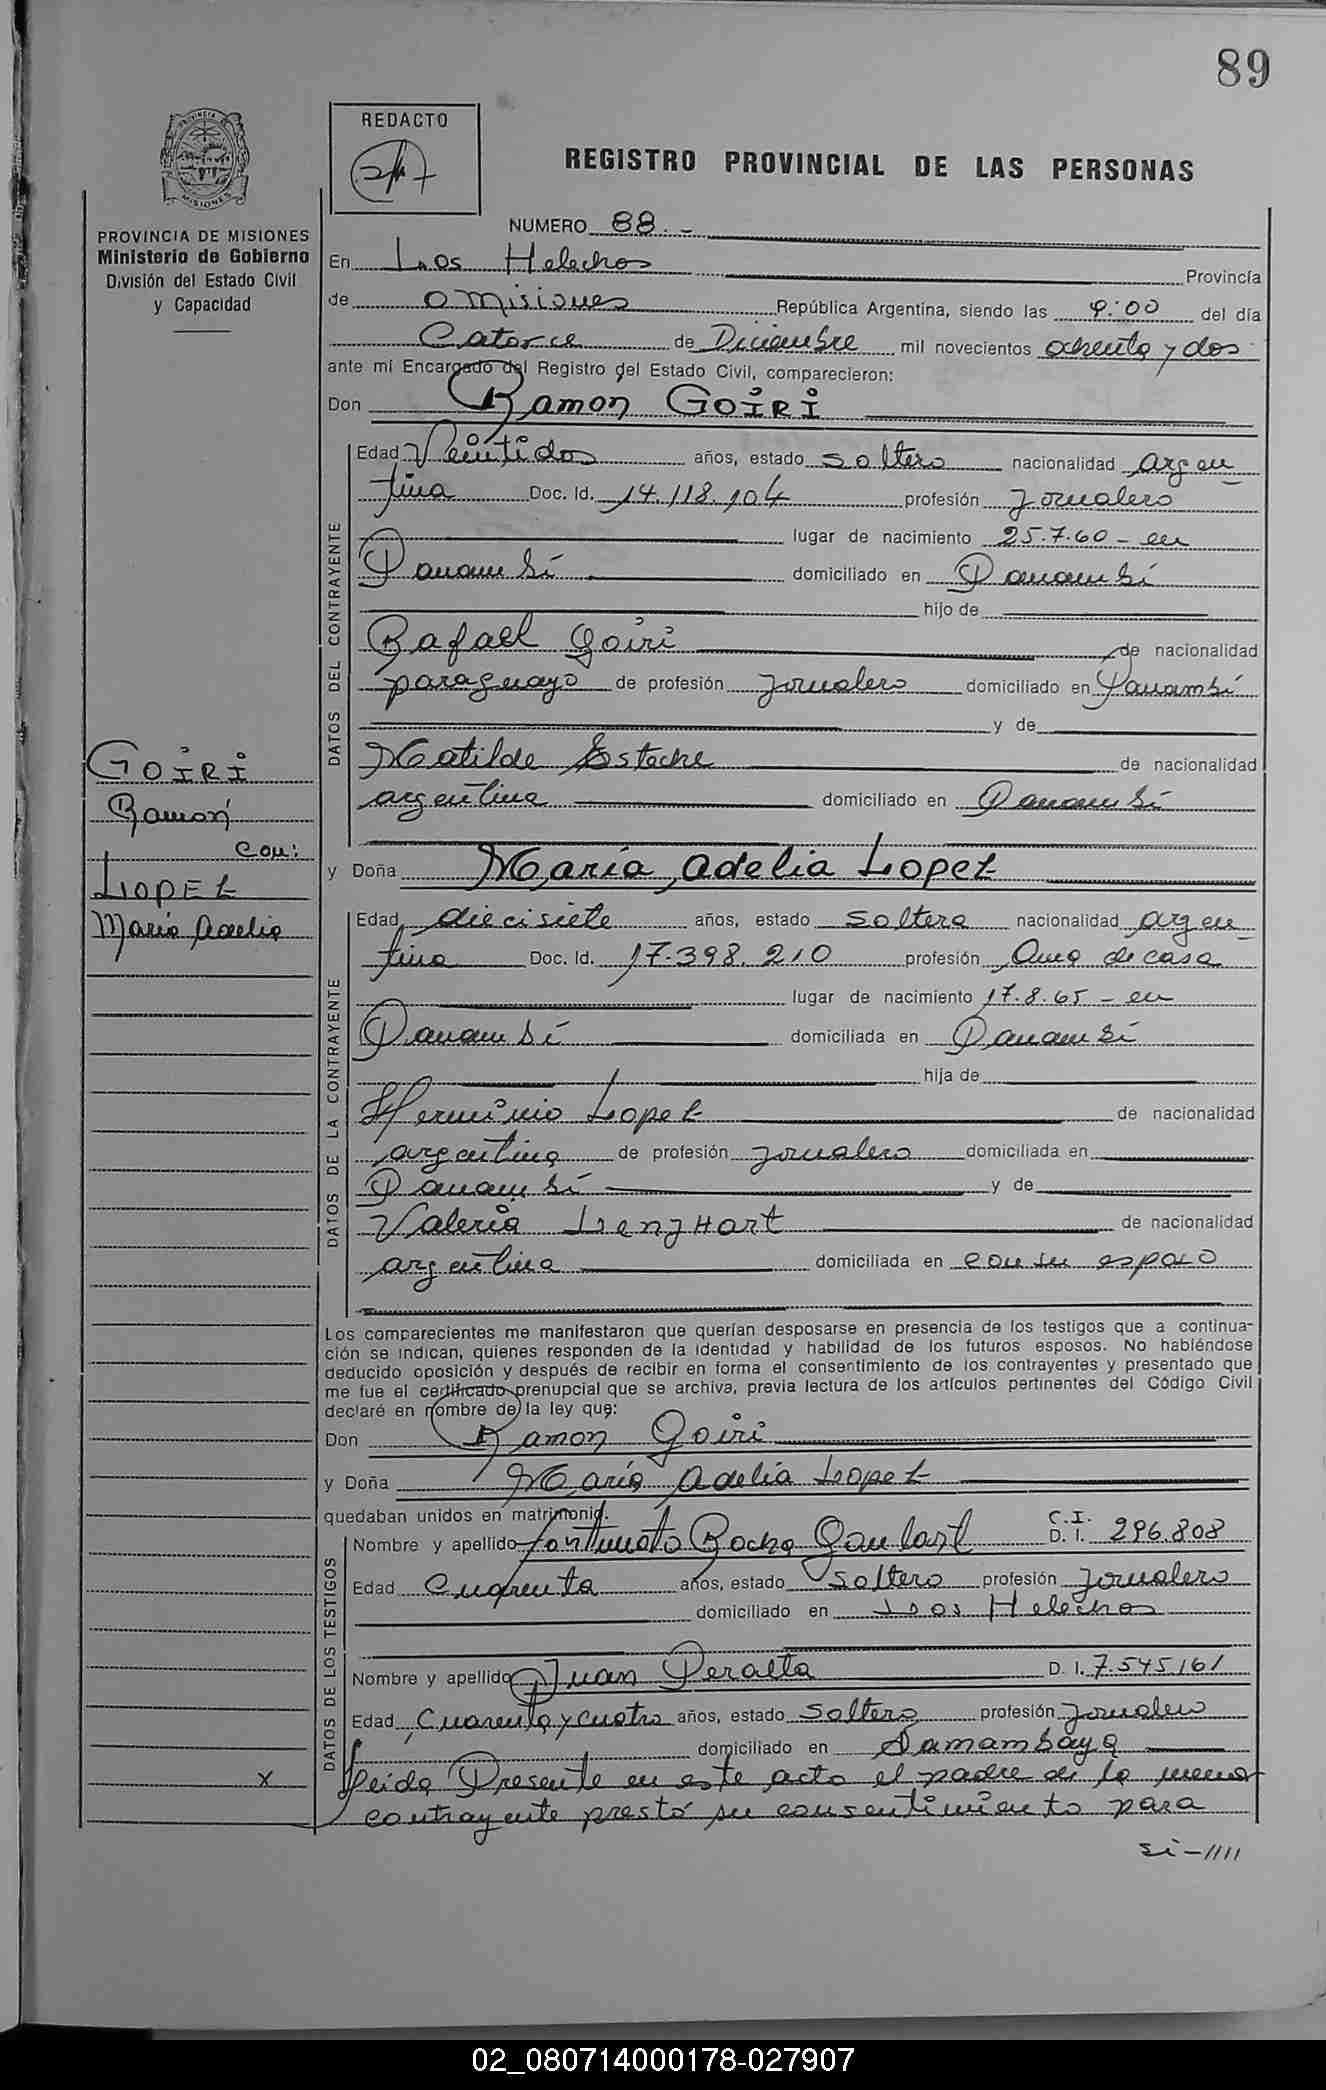 89
REDACTO
REGISTRO PROVINCIAL DE LAS PERSONAS
PROVINCIA DE MISIONES
Ministerio de Gobierno
División del Estado Civil
y Capacidad
NUMERO 88.-
En Los Helechos Provincia
de Misiones República Argentina, siendo las 9:00 del día
Catorce de Diciembre mil novecientos ochenta y dos
ante mí Encargado del Registro del Estado Civil, comparecieron:
Don Ramon GOIRI
DATOS DEL CONTRAYENTE
Edad Veintidos años, estado soltero nacionalidad argen
tina Doc. Id. 14.118.104 profesión Jornalero
lugar de nacimiento 25.7.60 - en
Panambí domiciliado en Panambí
hijo de
Rafael Goiri de nacionalidad
paraguayo de profesión jornalero domiciliado en Panambí
y de
Matilde Estache de nacionalidad
argentina domiciliado en Panambí
GOIRI
Ramón
con:
LOPEZ
María Adelia
y Doña María Adelia Lopez
DATOS DE LA CONTRAYENTE
Edad diecisiete años, estado soltera nacionalidad argen
tina Doc. Id. 17.398.210 profesión Ama de casa
lugar de nacimiento 17.8.65 - en
Panambí domiciliada en Panambí
hija de
Herminio Lopez de nacionalidad
argentina de profesión jornalero domiciliada en
Panambí y de
Valeria Lenzhart de nacionalidad
argentina domiciliada en con su esposo
Los comparecientes me manifestaron que querían desposarse en presencia de los testigos que a continua-
ción se indican, quienes responden de la identidad y habilidad de los futuros esposos. No habiéndose
deducido oposición y después de recibir en forma el consentimiento de los contrayentes y presentado que
me fue el certificado prenupcial que se archiva, previa lectura de los artículos pertinentes del Código Civil
declaré en nombre de la ley que:
Don Ramon Goiri
y Doña María Adelia Lopez
quedaban unidos en matrimonio.
DATOS DE LOS TESTIGOS
Nombre y apellido Fortunato Rocha Goulart C.I. D. I. 296.808
Edad Cuarenta años, estado soltero profesión Jornalero
domiciliado en Los Helechos
Nombre y apellido Juan Peralta D. I. 7.545.161
Edad Cuarenta y cuatro años, estado soltero profesión Jornalero
domiciliado en Samambaya
X
Leida Presente en este acto el padre de la menor
contrayente prestó su consentimiento para
si-////
02_080714000178-027907